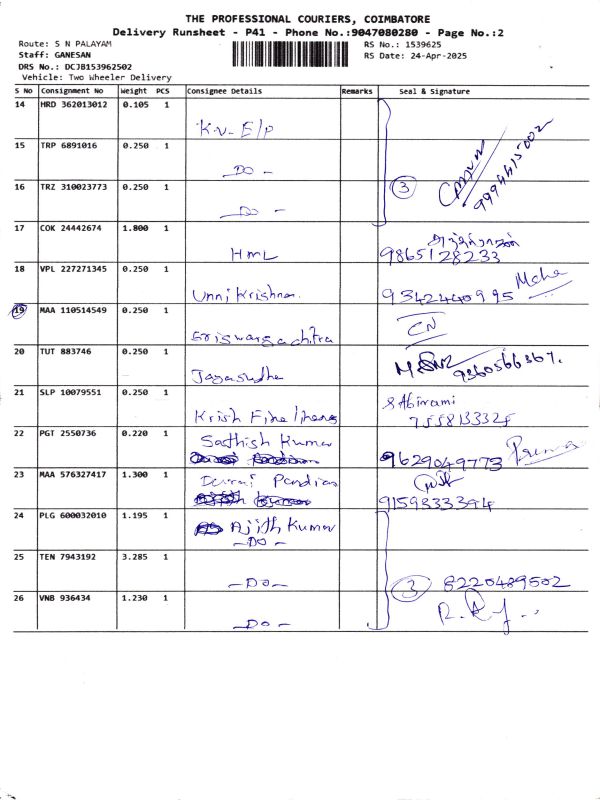 THE PROFESSIONAL COURIERS, COIMBATORE
Delivery Runsheet - P41 - Phone No.:9047080280 - Page No.:2
Route: S N PALAYAM
RS No.: 1539625
Staff: GANESAN
RS Date: 24-Apr-2025
DRS No.: DCJB153962502
Vehicle: Two Wheeler Delivery
S No Consignment No Weight PCS Consignee Details Remarks Seal & Signature
14 HRD 362013012 0.105 1
K.V- E/P
15 TRP 6891016 0.250 1
-DO-
16 TRZ 310023773 0.250 1
-DO-
3
17 COK 24442674 1.800 1
HML
9865128233
18 VPL 227271345 0.250 1
Unni Krishnan
9342440995 Maha
19 MAA 110514549 0.250 1
CN
20 TUT 883746 0.250 1
Jayasudha
9360566367.
21 SLP 10079551 0.250 1
Krish
S Abirami
22 PGT 2550736 0.220 1
Sathish Kumar
9629049773 Prema
23 MAA 576327417 1.300 1
Durai Pandian
24 PLG 600032010 1.195 1
Ajith Kumar
-DO-
25 TEN 7943192 3.285 1
-DO-
3 8220489502
26 VNB 936434 1.230 1
-DO-